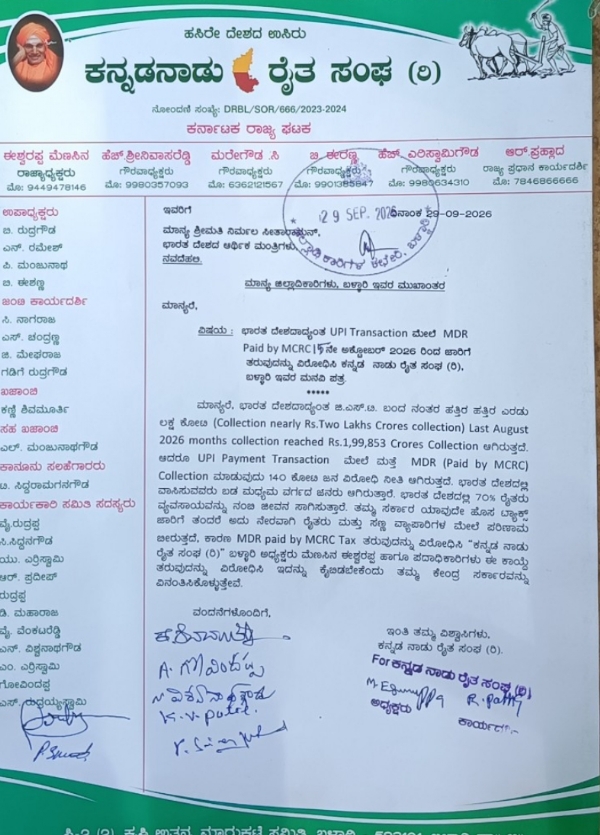 ಹಸಿರೇ ದೇಶದ ಉಸಿರು
ಕನ್ನಡನಾಡು ರೈತ ಸಂಘ (ರಿ)
ನೋಂದಣಿ ಸಂಖ್ಯೆ: DRBL/SOR/666/2023-2024
ಕರ್ನಾಟಕ ರಾಜ್ಯ ಘಟಕ
ಈಶ್ವರಪ್ಪ ಮೆಣಸಿನ
ರಾಜ್ಯಾಧ್ಯಕ್ಷರು
ಮೊ: 9449478146
ಹೆಚ್.ಶ್ರೀನಿವಾಸರೆಡ್ಡಿ
ಗೌರವಾಧ್ಯಕ್ಷರು
ಮೊ: 9980357093
ಮಾರೇಗೌಡ .ಸಿ
ಗೌರವಾಧ್ಯಕ್ಷರು
ಮೊ: 6362121567
ಬಿ ಈರಣ್ಣ
ಗೌರವಾಧ್ಯಕ್ಷರು
ಮೊ: 9901385847
ಹೆಚ್. ಎರಿಸ್ವಾಮಿಗೌಡ
ಗೌರವಾಧ್ಯಕ್ಷರು
ಮೊ: 9980634310
ಆರ್.ಪ್ರಹ್ಲಾದ
ರಾಜ್ಯ ಪ್ರಧಾನ ಕಾರ್ಯದರ್ಶಿ
ಮೊ: 7846866666
ಉಪಾಧ್ಯಕ್ಷರು
ಬಿ. ರುದ್ರಗೌಡ
ಎನ್. ರಮೇಶ್
ಪಿ. ಮಂಜುನಾಥ
ಬಿ. ಈಶಣ್ಣ
ಜಂಟಿ ಕಾರ್ಯದರ್ಶಿ
ಸಿ. ನಾಗರಾಜ
ಎಸ್. ಚಂದ್ರಣ್ಣ
ಜಿ. ಮೇಘರಾಜ
ಗಡಿಗೆ ರುದ್ರಗೌಡ
ಖಜಾಂಚಿ
ಕಣ್ಣಿ ಶಿವಮೂರ್ತಿ
ಸಹ ಖಜಾಂಚಿ
ಎಲ್. ಮಂಜುನಾಥಗೌಡ
ಕಾನೂನು ಸಲಹೆಗಾರರು
ಟಿ. ಸಿದ್ದರಾಮಗನಗೌಡ
ಕಾರ್ಯಕಾರಿ ಸಮಿತಿ ಸದಸ್ಯರು
ವೈ.ರುದ್ರಪ್ಪ
ಸಿ.ಸಿದ್ದನಗೌಡ
ಯು. ಎರ್ರಿಸ್ವಾಮಿ
ಆರ್. ಪ್ರದೀಪ್
ರುದ್ರಪ್ಪ
ಡಿ. ಮಹಾರಾಜ
ವೈ. ವೆಂಕಟರೆಡ್ಡಿ
ಎನ್. ವಿಶ್ವನಾಥಗೌಡ
ಎಂ. ಎರ್ರಿಸ್ವಾಮಿ
ಗೋವಿಂದಪ್ಪ
ಎಸ್. ರುದ್ರಯ್ಯಸ್ವಾಮಿ
ಇವರಿಗೆ
29 SEP. 2026
ದಿನಾಂಕ 29-09-2026
ಮಾನ್ಯ ಶ್ರೀಮತಿ ನಿರ್ಮಲ ಸೀತಾರಾಮನ್,
ಭಾರತ ದೇಶದ ಆರ್ಥಿಕ ಮಂತ್ರಿಗಳು,
ನವದೆಹಲಿ.
ಮಾನ್ಯ ಜಿಲ್ಲಾಧಿಕಾರಿಗಳು, ಬಳ್ಳಾರಿ ಇವರ ಮುಖಾಂತರ
ಮಾನ್ಯರೆ,
ವಿಷಯ : ಭಾರತ ದೇಶದಾದ್ಯಂತ UPI Transaction ಮೇಲೆ MDR
Paid by MCRC 15ನೇ ಅಕ್ಟೋಬರ್ 2026 ರಿಂದ ಜಾರಿಗೆ
ತರುವುದನ್ನು ವಿರೋಧಿಸಿ ಕನ್ನಡ ನಾಡು ರೈತ ಸಂಘ (ರಿ),
ಬಳ್ಳಾರಿ ಇವರ ಮನವಿ ಪತ್ರ.
*****
ಮಾನ್ಯರೇ, ಭಾರತ ದೇಶದಾದ್ಯಂತ ಜಿ.ಎಸ್.ಟಿ. ಬಂದ ನಂತರ ಹತ್ತಿರ ಹತ್ತಿರ ಎರಡು
ಲಕ್ಷ ಕೋಟಿ (Collection nearly Rs.Two Lakhs Crores collection) Last August
2026 months collection reached Rs.1,99,853 Crores Collection ಆಗಿರುತ್ತದೆ.
ಆದರೂ UPI Payment Transaction ಮೇಲೆ ಮತ್ತೆ MDR (Paid by MCRC)
Collection ಮಾಡುವುದು 140 ಕೋಟಿ ಜನ ವಿರೋಧಿ ನೀತಿ ಆಗಿರುತ್ತದೆ. ಭಾರತ ದೇಶದಲ್ಲಿ
ವಾಸಿಸುವವರು ಬಡ ಮಧ್ಯಮ ವರ್ಗದ ಜನರು ಆಗಿರುತ್ತಾರೆ. ಭಾರತ ದೇಶದಲ್ಲಿ 70% ರೈತರು
ವ್ಯವಸಾಯವನ್ನು ನಂಬಿ ಜೀವನ ಸಾಗಿಸುತ್ತಾರೆ. ತಮ್ಮ ಸರ್ಕಾರ ಯಾವುದೇ ಹೊಸ ಟ್ಯಾಕ್ಸ್
ಜಾರಿಗೆ ತಂದರೆ ಅದು ನೇರವಾಗಿ ರೈತರು ಮತ್ತು ಸಣ್ಣ ವ್ಯಾಪಾರಿಗಳ ಮೇಲೆ ಪರಿಣಾಮ
ಬೀರುತ್ತದೆ, ಕಾರಣ MDR paid by MCRC Tax ತರುವುದನ್ನು ವಿರೋಧಿಸಿ "ಕನ್ನಡ ನಾಡು
ರೈತ ಸಂಘ (ರಿ)" ಬಳ್ಳಾರಿ ಅಧ್ಯಕ್ಷರು ಮೆಣಸಿನ ಈಶ್ವರಪ್ಪ ಹಾಗೂ ಪದಾಧಿಕಾರಿಗಳು ಈ ಕಾಯ್ದೆ
ತರುವುದನ್ನು ವಿರೋಧಿಸಿ ಇದನ್ನು ಕೈಬಿಡಬೇಕೆಂದು ತಮ್ಮ ಕೇಂದ್ರ ಸರ್ಕಾರವನ್ನು
ವಿನಂತಿಸಿಕೊಳ್ಳುತ್ತೇವೆ.
ವಂದನೆಗಳೊಂದಿಗೆ,
A. ಗೋವಿಂದಪ್ಪ
N ವಿಶ್ವನಾಥಗೌಡ
K.V. Patil.
ಇಂತಿ ತಮ್ಮ ವಿಶ್ವಾಸಿಗಳು,
ಕನ್ನಡ ನಾಡು ರೈತ ಸಂಘ (ರಿ).
For ಕನ್ನಡ ನಾಡು ರೈತ ಸಂಘ (ರಿ)
ಅಧ್ಯಕ್ಷರು
ಕಾರ್ಯದ